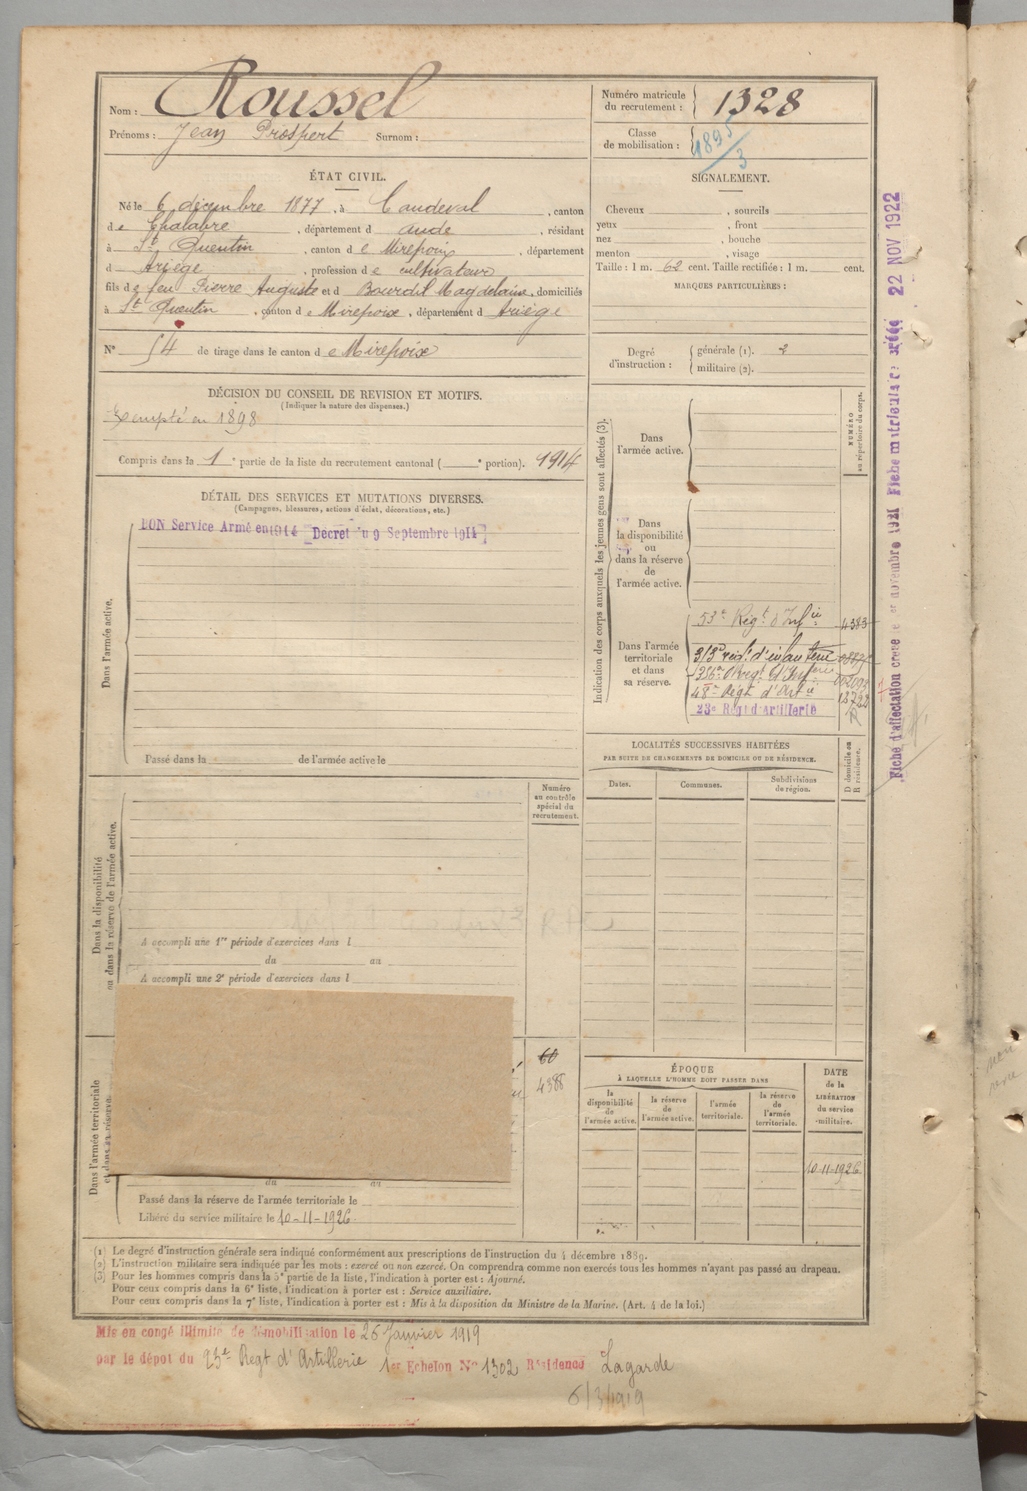 Nom : Roussel
Prénoms : Jean Prospert Surnom :
Numéro matricule du recrutement : 1328
Classe de mobilisation : 1895/3
ÉTAT CIVIL.
Né le 6 décembre 1877, à Caudeval, canton
de Chalabre, département d aude, résidant
à St Quentin, canton de Mirepoix, département
d Ariège, profession de cultivateur
fils de feu Pierre Auguste et d Bourdil Magdelaine, domiciliés
à St Quentin, canton de Mirepoix, département d Ariège
N° 54 de tirage dans le canton de Mirepoix
SIGNALEMENT.
Cheveux , sourcils
yeux , front
nez , bouche
menton , visage
Taille : 1 m. 62 cent. Taille rectifiée : 1 m. cent.
MARQUES PARTICULIÈRES :
Degré d'instruction : générale (1). 2
militaire (2).
DÉCISION DU CONSEIL DE REVISION ET MOTIFS.
(Indiquer la nature des dispenses.)
Exempté en 1898
Compris dans la 1e partie de la liste du recrutement cantonal ( e portion). 1914
DÉTAIL DES SERVICES ET MUTATIONS DIVERSES.
(Campagnes, blessures, actions d'éclat, décorations, etc.)
BON Service Armé en 1914 [Decret du 9 Septembre 1914]
Dans l'armée active.
Passé dans la de l'armée active le
Indication des corps auxquels les jeunes gens sont affectés (3).
NUMÉRO au répertoire du corps.
Dans l'armée active.
Dans la disponibilité ou dans la réserve de l'armée active.
Dans l'armée territoriale et dans sa réserve.
53e Régt d'Infie 4383
313e régt d'infanterie
136e Régt d'Infrie
48e Régt d'Artie
23e Régt d'artillerie R
Fiche d'affectation créée le novembre 1921 Fiche matriculaire créée 22 NOV 1922
LOCALITÉS SUCCESSIVES HABITÉES
PAR SUITE DE CHANGEMENTS DE DOMICILE OU DE RÉSIDENCE.
Dates. Communes. Subdivisions de région.
D domicile ou R résidence.
Numéro au contrôle spécial du recrutement.
Dans la disponibilité ou dans la réserve de l'armée active.
A accompli une 1re période d'exercices dans l
du au
A accompli une 2e période d'exercices dans l
60
4388
Dans l'armée territoriale et dans sa réserve.
du au
Passé dans la réserve de l'armée territoriale le
Libéré du service militaire le 10-11-1926
ÉPOQUE
À LAQUELLE L'HOMME DOIT PASSER DANS
la disponibilité de l'armée active.
la réserve de l'armée active.
l'armée territoriale.
la réserve de l'armée territoriale.
DATE de la LIBÉRATION du service militaire.
10-11-1926
(1) Le degré d'instruction générale sera indiqué conformément aux prescriptions de l'instruction du 4 décembre 1889.
(2) L'instruction militaire sera indiquée par les mots : exercé ou non exercé. On comprendra comme non exercés tous les hommes n'ayant pas passé au drapeau.
(3) Pour les hommes compris dans la 5e partie de la liste, l'indication à porter est : Ajourné.
Pour ceux compris dans la 6e liste, l'indication à porter est : Service auxiliaire.
Pour ceux compris dans la 7e liste, l'indication à porter est : Mis à la disposition du Ministre de la Marine. (Art. 4 de la loi.)
Mis en congé illimité de démobilisation le 26 Janvier 1919
par le dépot du 23e Regt d'Artillerie 1er Echelon N° 1302 Résidence Lagarde
6/3/1919